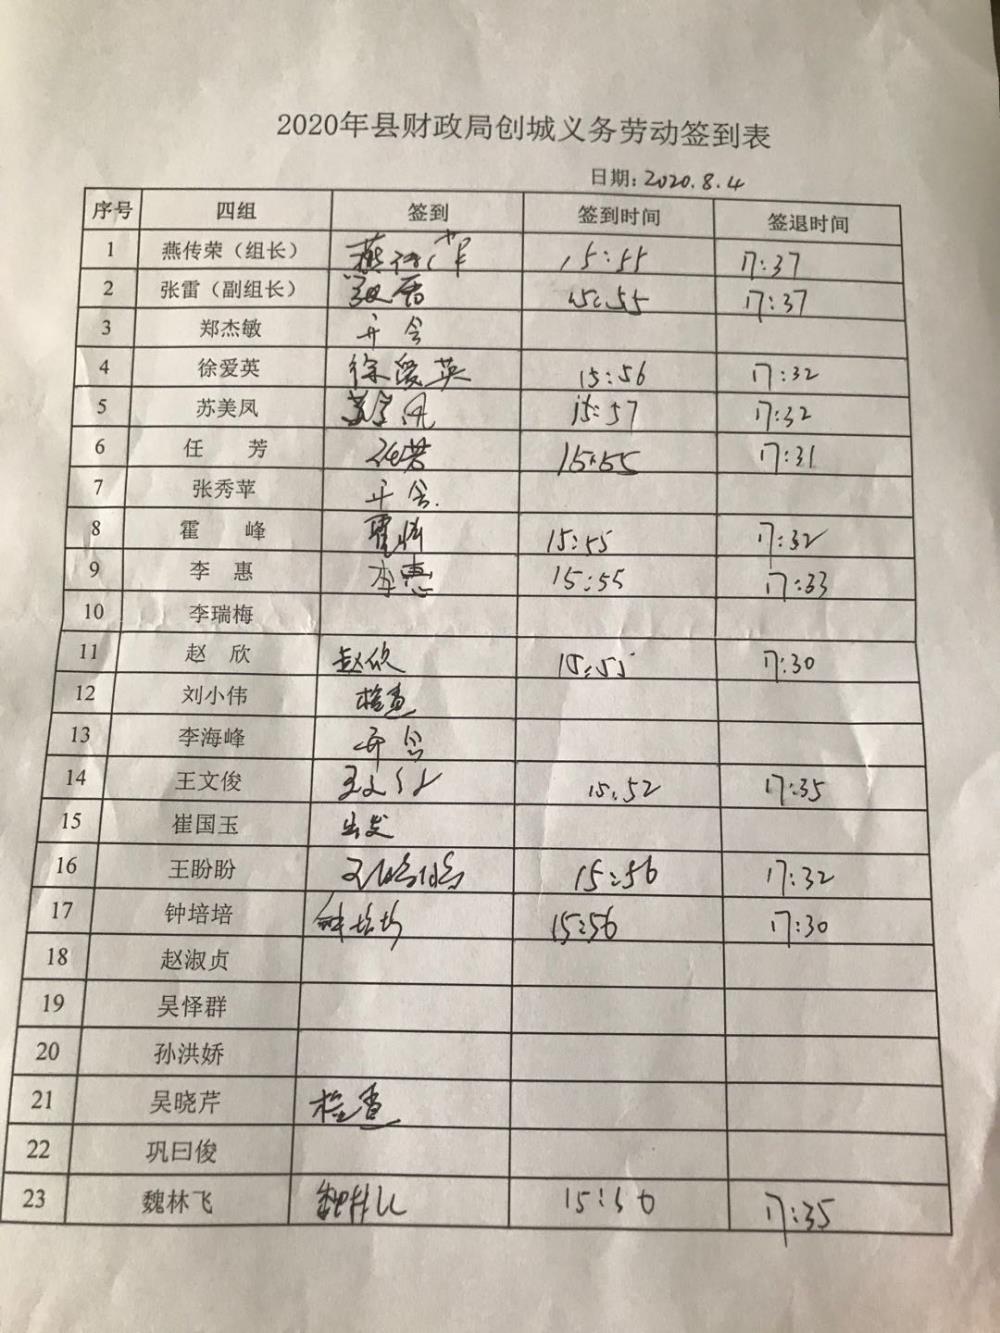 2020年县财政局创城义务劳动签到表
日期: 2020.8.4
序号 四组 签到 签到时间 签退时间
1 燕传荣（组长） 燕传荣 15:55 17:37
2 张雷（副组长） 张雷 15:55 17:37
3 郑杰敏 开会
4 徐爱英 徐爱英 15:56 17:32
5 苏美凤 苏美凤 15:57 17:32
6 任 芳 任芳 15:55 17:31
7 张秀苹 开会.
8 霍 峰 霍峰 15:55 17:32
9 李 惠 李惠 15:55 17:33
10 李瑞梅
11 赵 欣 赵欣 15:55 17:30
12 刘小伟 检查
13 李海峰 开会
14 王文俊 王文俊 15:52 17:35
15 崔国玉 出发
16 王盼盼 王盼盼 15:56 17:32
17 钟培培 钟培培 15:56 17:30
18 赵淑贞
19 吴怿群
20 孙洪娇
21 吴晓芹 检查
22 巩曰俊
23 魏林飞 魏林飞 17:35